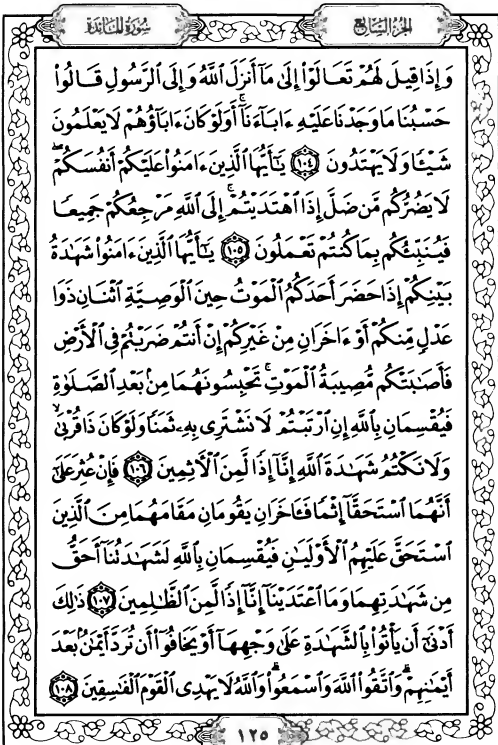 سُورَةُ المَائِدَةِ
الجُزْءُ السَّابِعُ
وَإِذَا قِيلَ لَهُمْ تَعَالَوْا۟ إِلَىٰ مَآ أَنزَلَ ٱللَّهُ وَإِلَى ٱلرَّسُولِ قَالُوا۟
حَسْبُنَا مَا وَجَدْنَا عَلَيْهِ ءَابَآءَنَآۚ أَوَلَوْ كَانَ ءَابَآؤُهُمْ لَا يَعْلَمُونَ
شَيْـًٔا وَلَا يَهْتَدُونَ ١٠٤ يَـٰٓأَيُّهَا ٱلَّذِينَ ءَامَنُوا۟ عَلَيْكُمْ أَنفُسَكُمْۖ
لَا يَضُرُّكُم مَّن ضَلَّ إِذَا ٱهْتَدَيْتُمْۚ إِلَى ٱللَّهِ مَرْجِعُكُمْ جَمِيعًا
فَيُنَبِّئُكُم بِمَا كُنتُمْ تَعْمَلُونَ ١٠٥ يَـٰٓأَيُّهَا ٱلَّذِينَ ءَامَنُوا۟ شَهَـٰدَةُ
بَيْنِكُمْ إِذَا حَضَرَ أَحَدَكُمُ ٱلْمَوْتُ حِينَ ٱلْوَصِيَّةِ ٱثْنَانِ ذَوَا
عَدْلٍ مِّنكُمْ أَوْ ءَاخَرَانِ مِنْ غَيْرِكُمْ إِنْ أَنتُمْ ضَرَبْتُمْ فِى ٱلْأَرْضِ
فَأَصَـٰبَتْكُم مُّصِيبَةُ ٱلْمَوْتِۚ تَحْبِسُونَهُمَا مِنۢ بَعْدِ ٱلصَّلَوٰةِ
فَيُقْسِمَانِ بِٱللَّهِ إِنِ ٱرْتَبْتُمْ لَا نَشْتَرِى بِهِۦ ثَمَنًا وَلَوْ كَانَ ذَا قُرْبَىٰۙ
وَلَا نَكْتُمُ شَهَـٰدَةَ ٱللَّهِ إِنَّآ إِذًا لَّمِنَ ٱلْـَٔاثِمِينَ ١٠٦ فَإِنْ عُثِرَ عَلَىٰٓ
أَنَّهُمَا ٱسْتَحَقَّآ إِثْمًا فَـَٔاخَرَانِ يَقُومَانِ مَقَامَهُمَا مِنَ ٱلَّذِينَ
ٱسْتَحَقَّ عَلَيْهِمُ ٱلْأَوْلَيَـٰنِ فَيُقْسِمَانِ بِٱللَّهِ لَشَهَـٰدَتُنَآ أَحَقُّ
مِن شَهَـٰدَتِهِمَا وَمَا ٱعْتَدَيْنَآ إِنَّآ إِذًا لَّمِنَ ٱلظَّـٰلِمِينَ ١٠٧ ذَٰلِكَ
أَدْنَىٰٓ أَن يَأْتُوا۟ بِٱلشَّهَـٰدَةِ عَلَىٰ وَجْهِهَآ أَوْ يَخَافُوٓا۟ أَن تُرَدَّ أَيْمَـٰنٌۢ بَعْدَ
أَيْمَـٰنِهِمْۗ وَٱتَّقُوا۟ ٱللَّهَ وَٱسْمَعُوا۟ۗ وَٱللَّهُ لَا يَهْدِى ٱلْقَوْمَ ٱلْفَـٰسِقِينَ ١٠٨
١٢٥